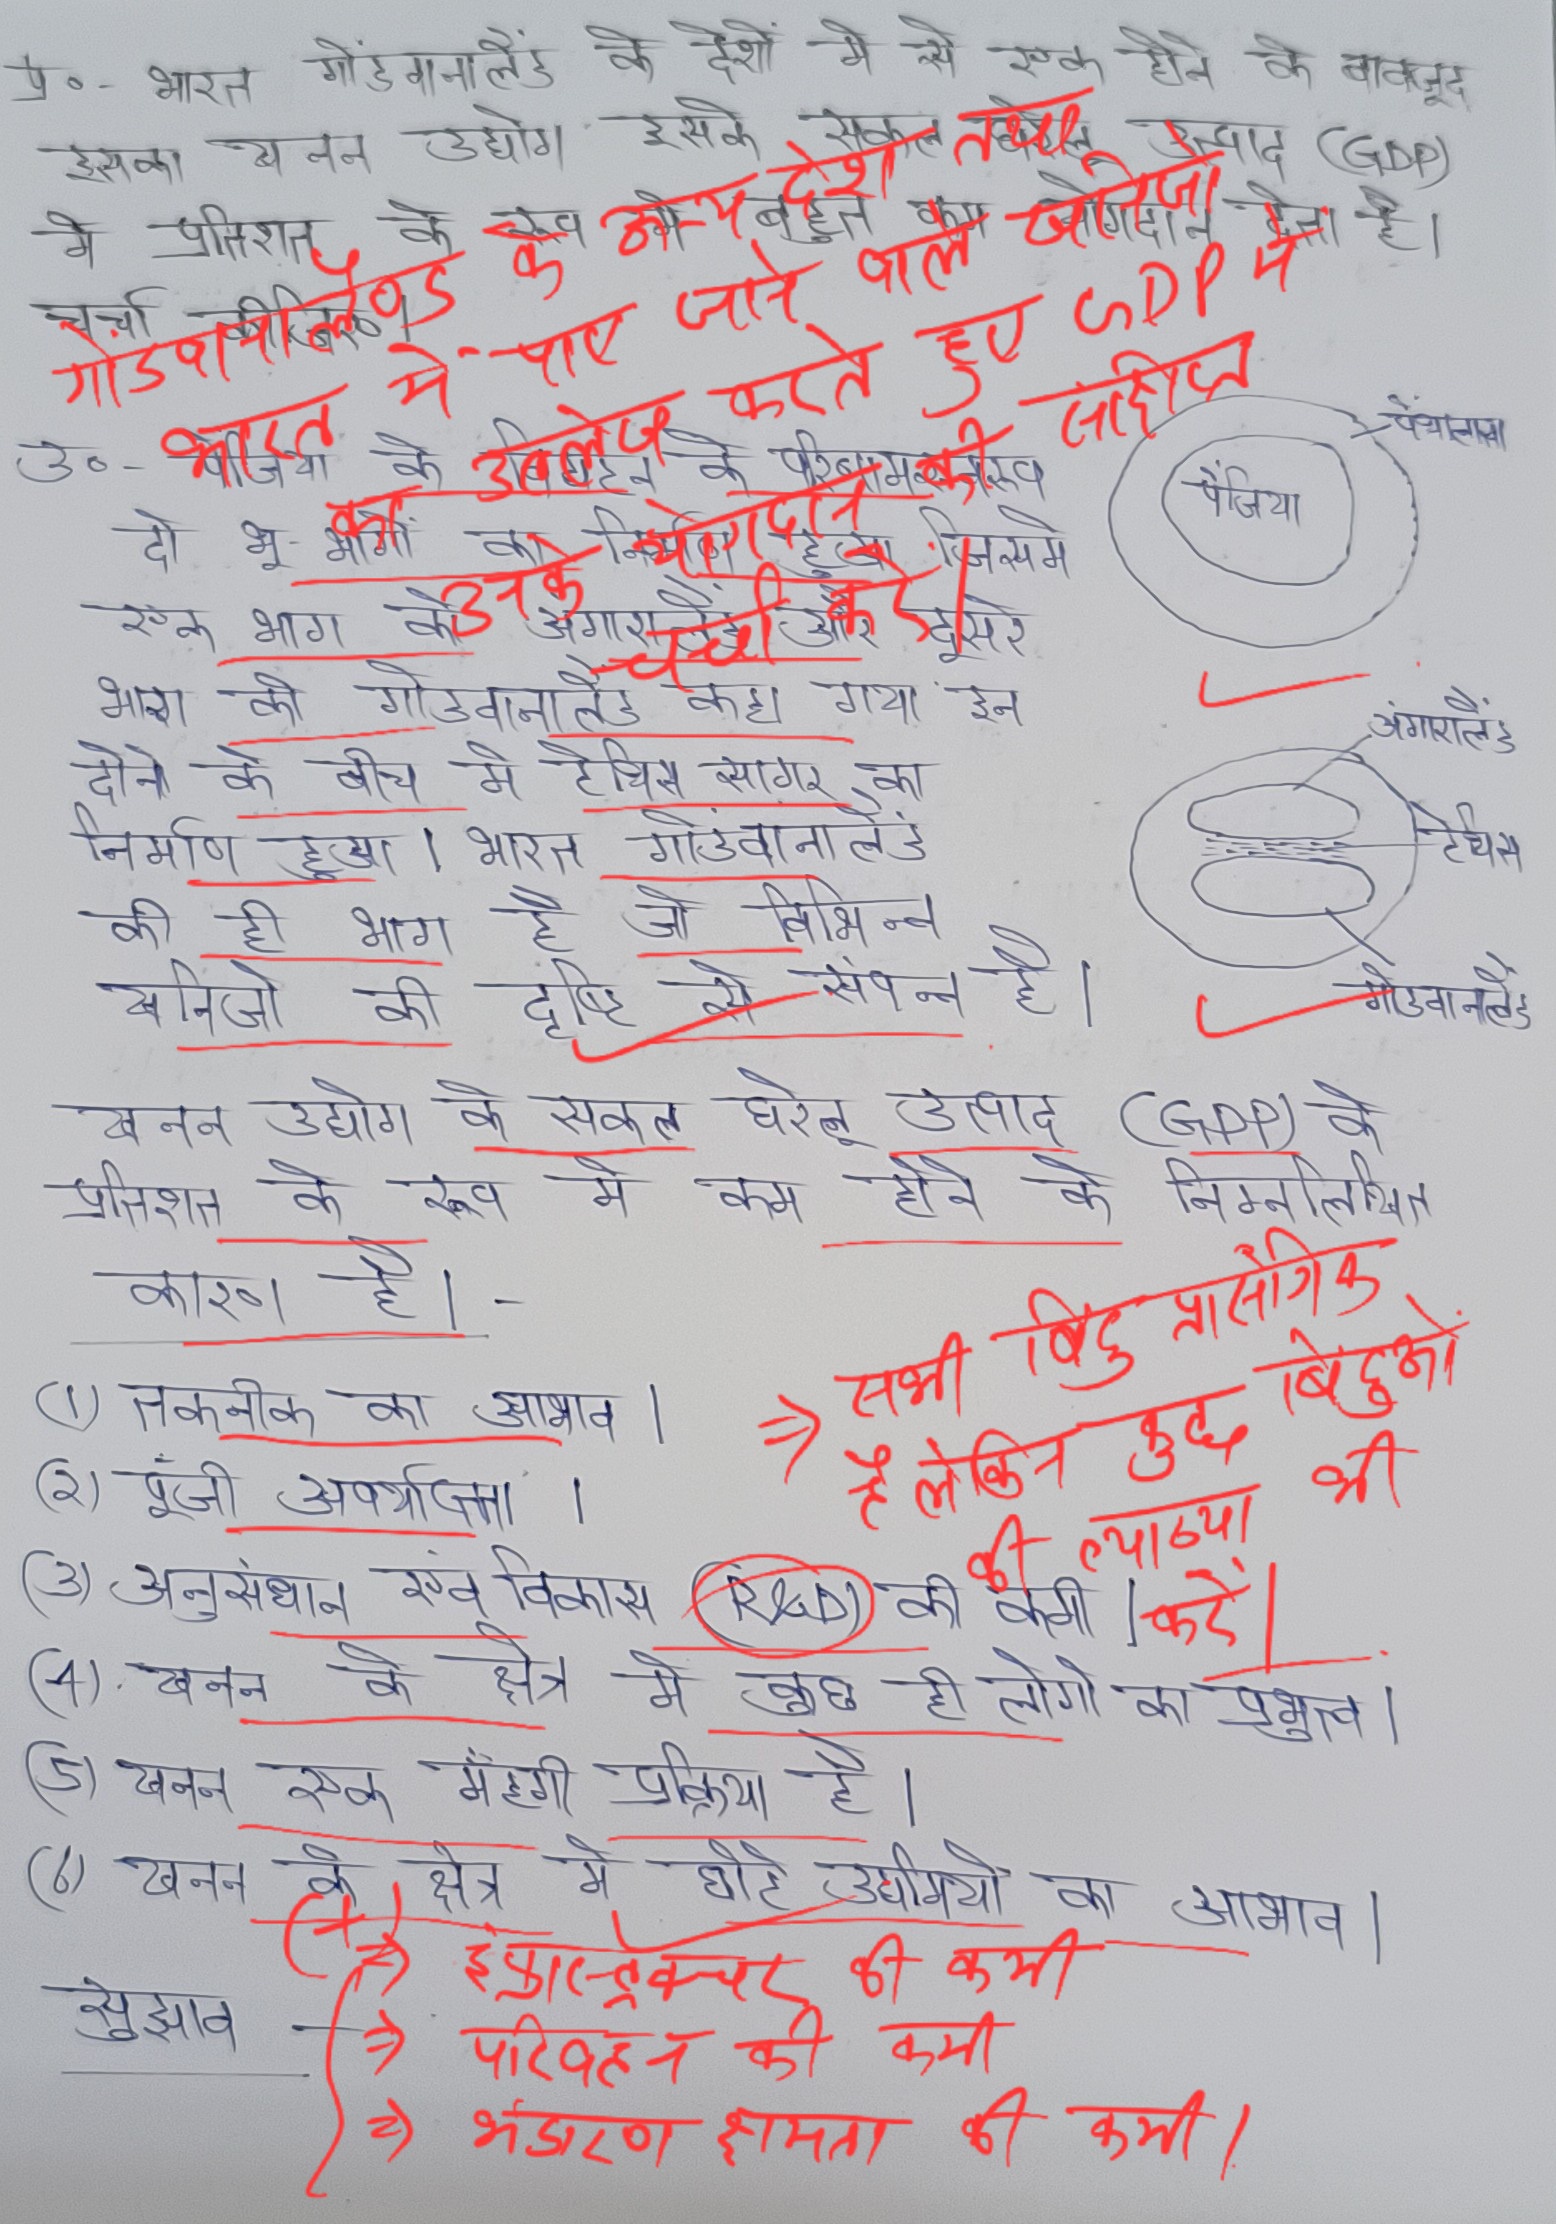 प्र०- भारत गोंडवानालैंड के देशों मे से एक होने के बावजूद
इसका खनन उद्योग इसके सकल घरेलू उत्पाद (GDP)
मे प्रतिशत के रूप मे बहुत कम योगदान देता है।
चर्चा कीजिए।
गोंडवानालैण्ड के अन्य देश तथा
भारत में पाए जाने वाले खनिजों
का उल्लेख करते हुए GDP में
उनके योगदान की संक्षिप्त
चर्चा करें।
उ०- पैंजिया के विघटन के परिणामस्वरूप
दो भू-भागों का निर्माण हुआ जिसमे
एक भाग को अंगारालैंड और दूसरे
भाग को गोंडवानालैंड कहा गया इन
दोनो के बीच मे टेथिस सागर का
निर्माण हुआ। भारत गोंडवानालैंड
की ही भाग है जो विभिन्न
खनिजो की दृष्टि से संपन्न है।
पैंथालासा
पैंजिया
अंगारालैंड
टेथिस
गोंडवानालैंड
खनन उद्योग के सकल घरेलू उत्पाद (GDP) के
प्रतिशत के रूप मे कम होने के निम्नलिखित
कारण है। -
(1) तकनीक का आभाव।
(2) पूंजी अपर्याप्तता।
(3) अनुसंधान एंव विकास (R&D) की कमी।
(4) खनन के क्षेत्र मे कुछ ही लोगो का प्रभुत्व।
(5) खनन एक मँहगी प्रक्रिया है।
(6) खनन के क्षेत्र मे छोटे उद्यमियों का आभाव।
⇒ सभी बिंदु प्रासंगिक
है लेकिन कुछ बिंदुओं
की व्याख्या भी
करें।
(+)
⇒ इंफ्रास्ट्रक्चर की कमी
⇒ परिवहन की कमी
⇒ भंडारण क्षमता की कमी।
सुझाव -